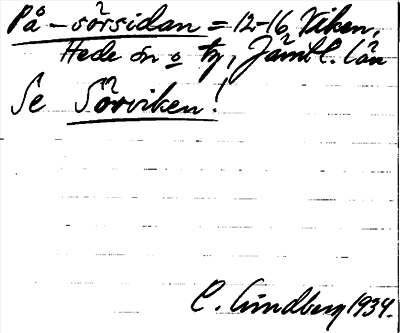 På-sörsidan = 12-16 Viken,
Hede sn o tg, Jämtl. län
Se Sörviken!
C. Lindberg 1934.